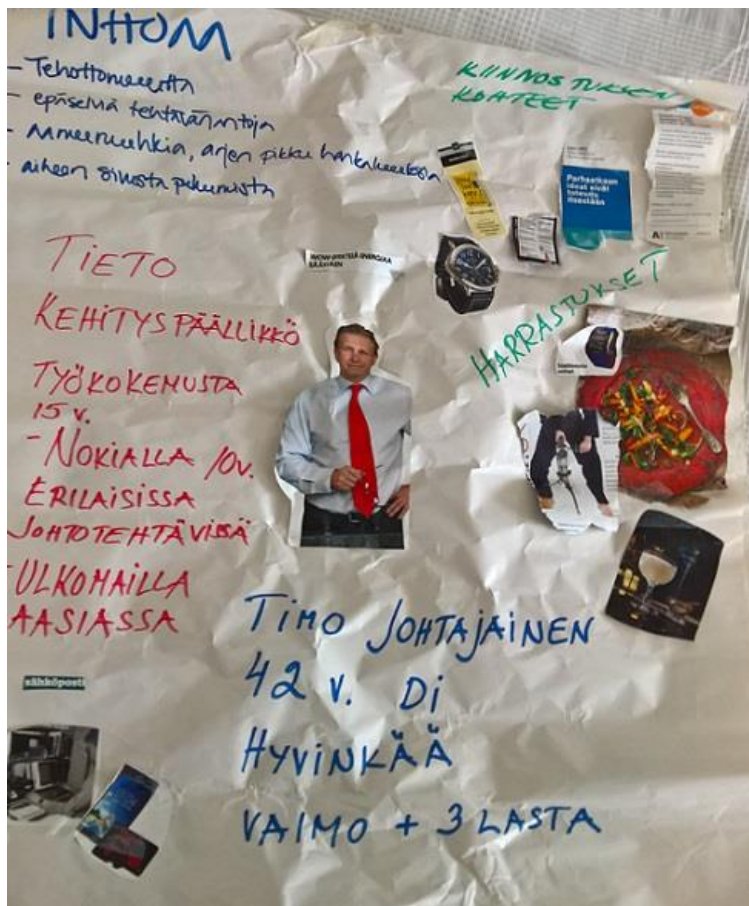 INHOM
- Tehottomuutta
- epäselviä tehtävänantoja
- , arjen pikku hankaluuksia
- aiheen sivusta puhumista
KIINNOSTUKSEN
KOHTEET
Parhaatkaan
ideat eivät
toteudu
itsestään
TIETO
KEHITYSPÄÄLLIKKÖ
TYÖKOKEMUSTA
15 v.
- NOKIALLA 10v.
ERILAISISSA
JOHTOTEHTÄVISSÄ
- ULKOMAILLA
AASIASSA
HARRASTUKSET
TIMO JOHTAJAINEN
42 v. Di
HYVINKÄÄ
VAIMO + 3 LASTA
sähköposti